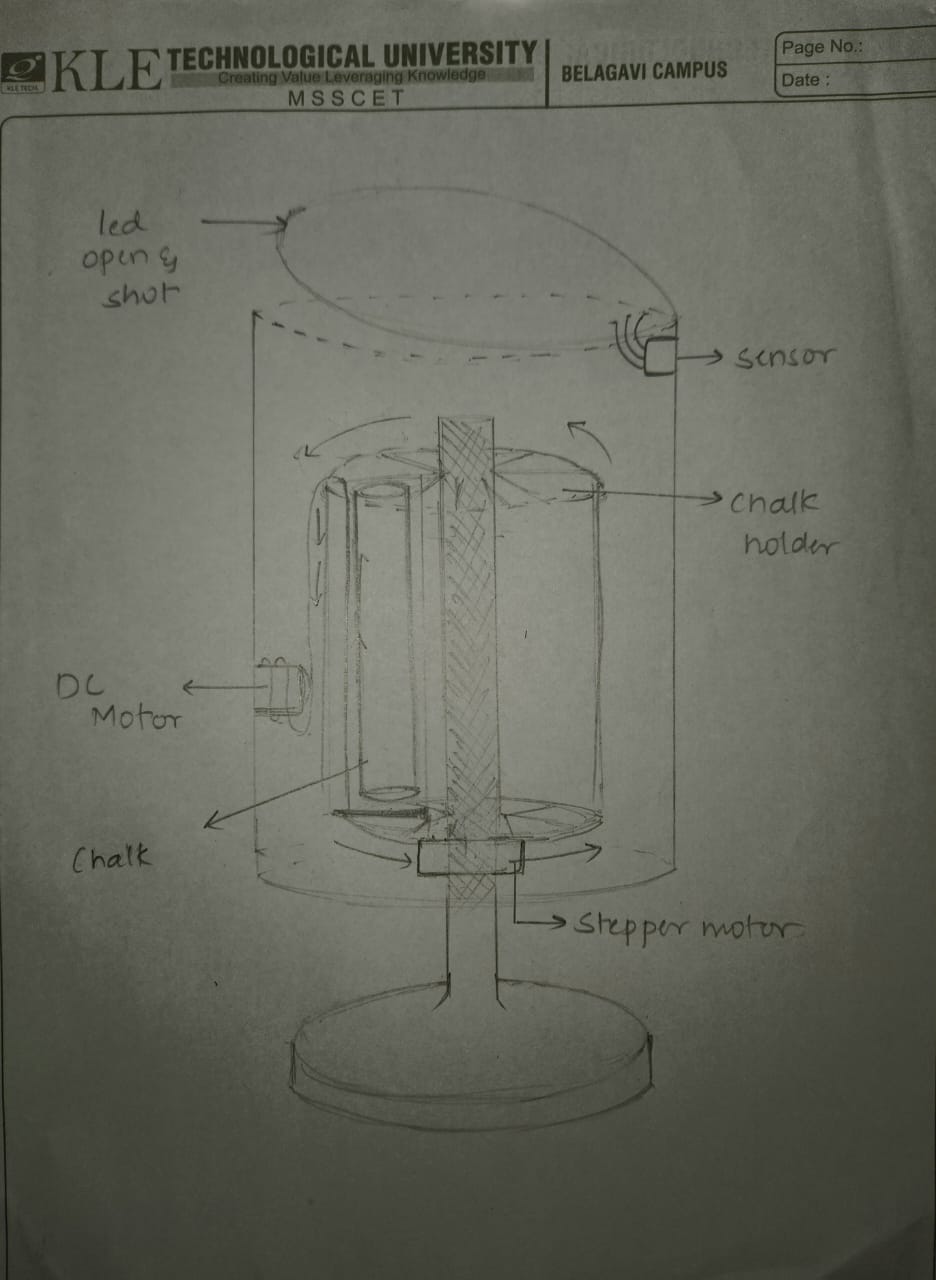 KLE TECH.
KLE TECHNOLOGICAL UNIVERSITY
Creating Value Leveraging Knowledge
MSSCET
BELAGAVI CAMPUS
Page No.:
Date :
led
open &
shut
sensor
Chalk
holder
DC
Motor
Chalk
Stepper motor